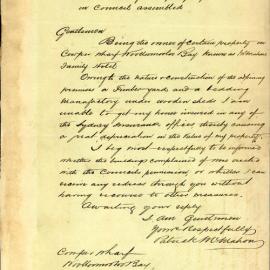 in Council assembled
Gentlemen
Being the owner of certain property on
Cowper Wharf Woolloomooloo Bay known as McMahons
Family Hotel
Owing to the nature & construction of the adjoining
premises a Timber yard and a bedding
Manufactory under wooden sheds I am
unable to get my house insured in any of
the Sydney Insurance offices thereby causing
a great depreciation in the value of my property.
I beg most respectfully to be informed
whether the buildings complained of were erected
with the Councils permission, or whether I can
receive any redress through you without
having recourse to other measures.
Awaiting your reply
I am Gentlemen
Yours Respectfully
Patrick McMahon
Cowper Wharf
Woolloomooloo Bay